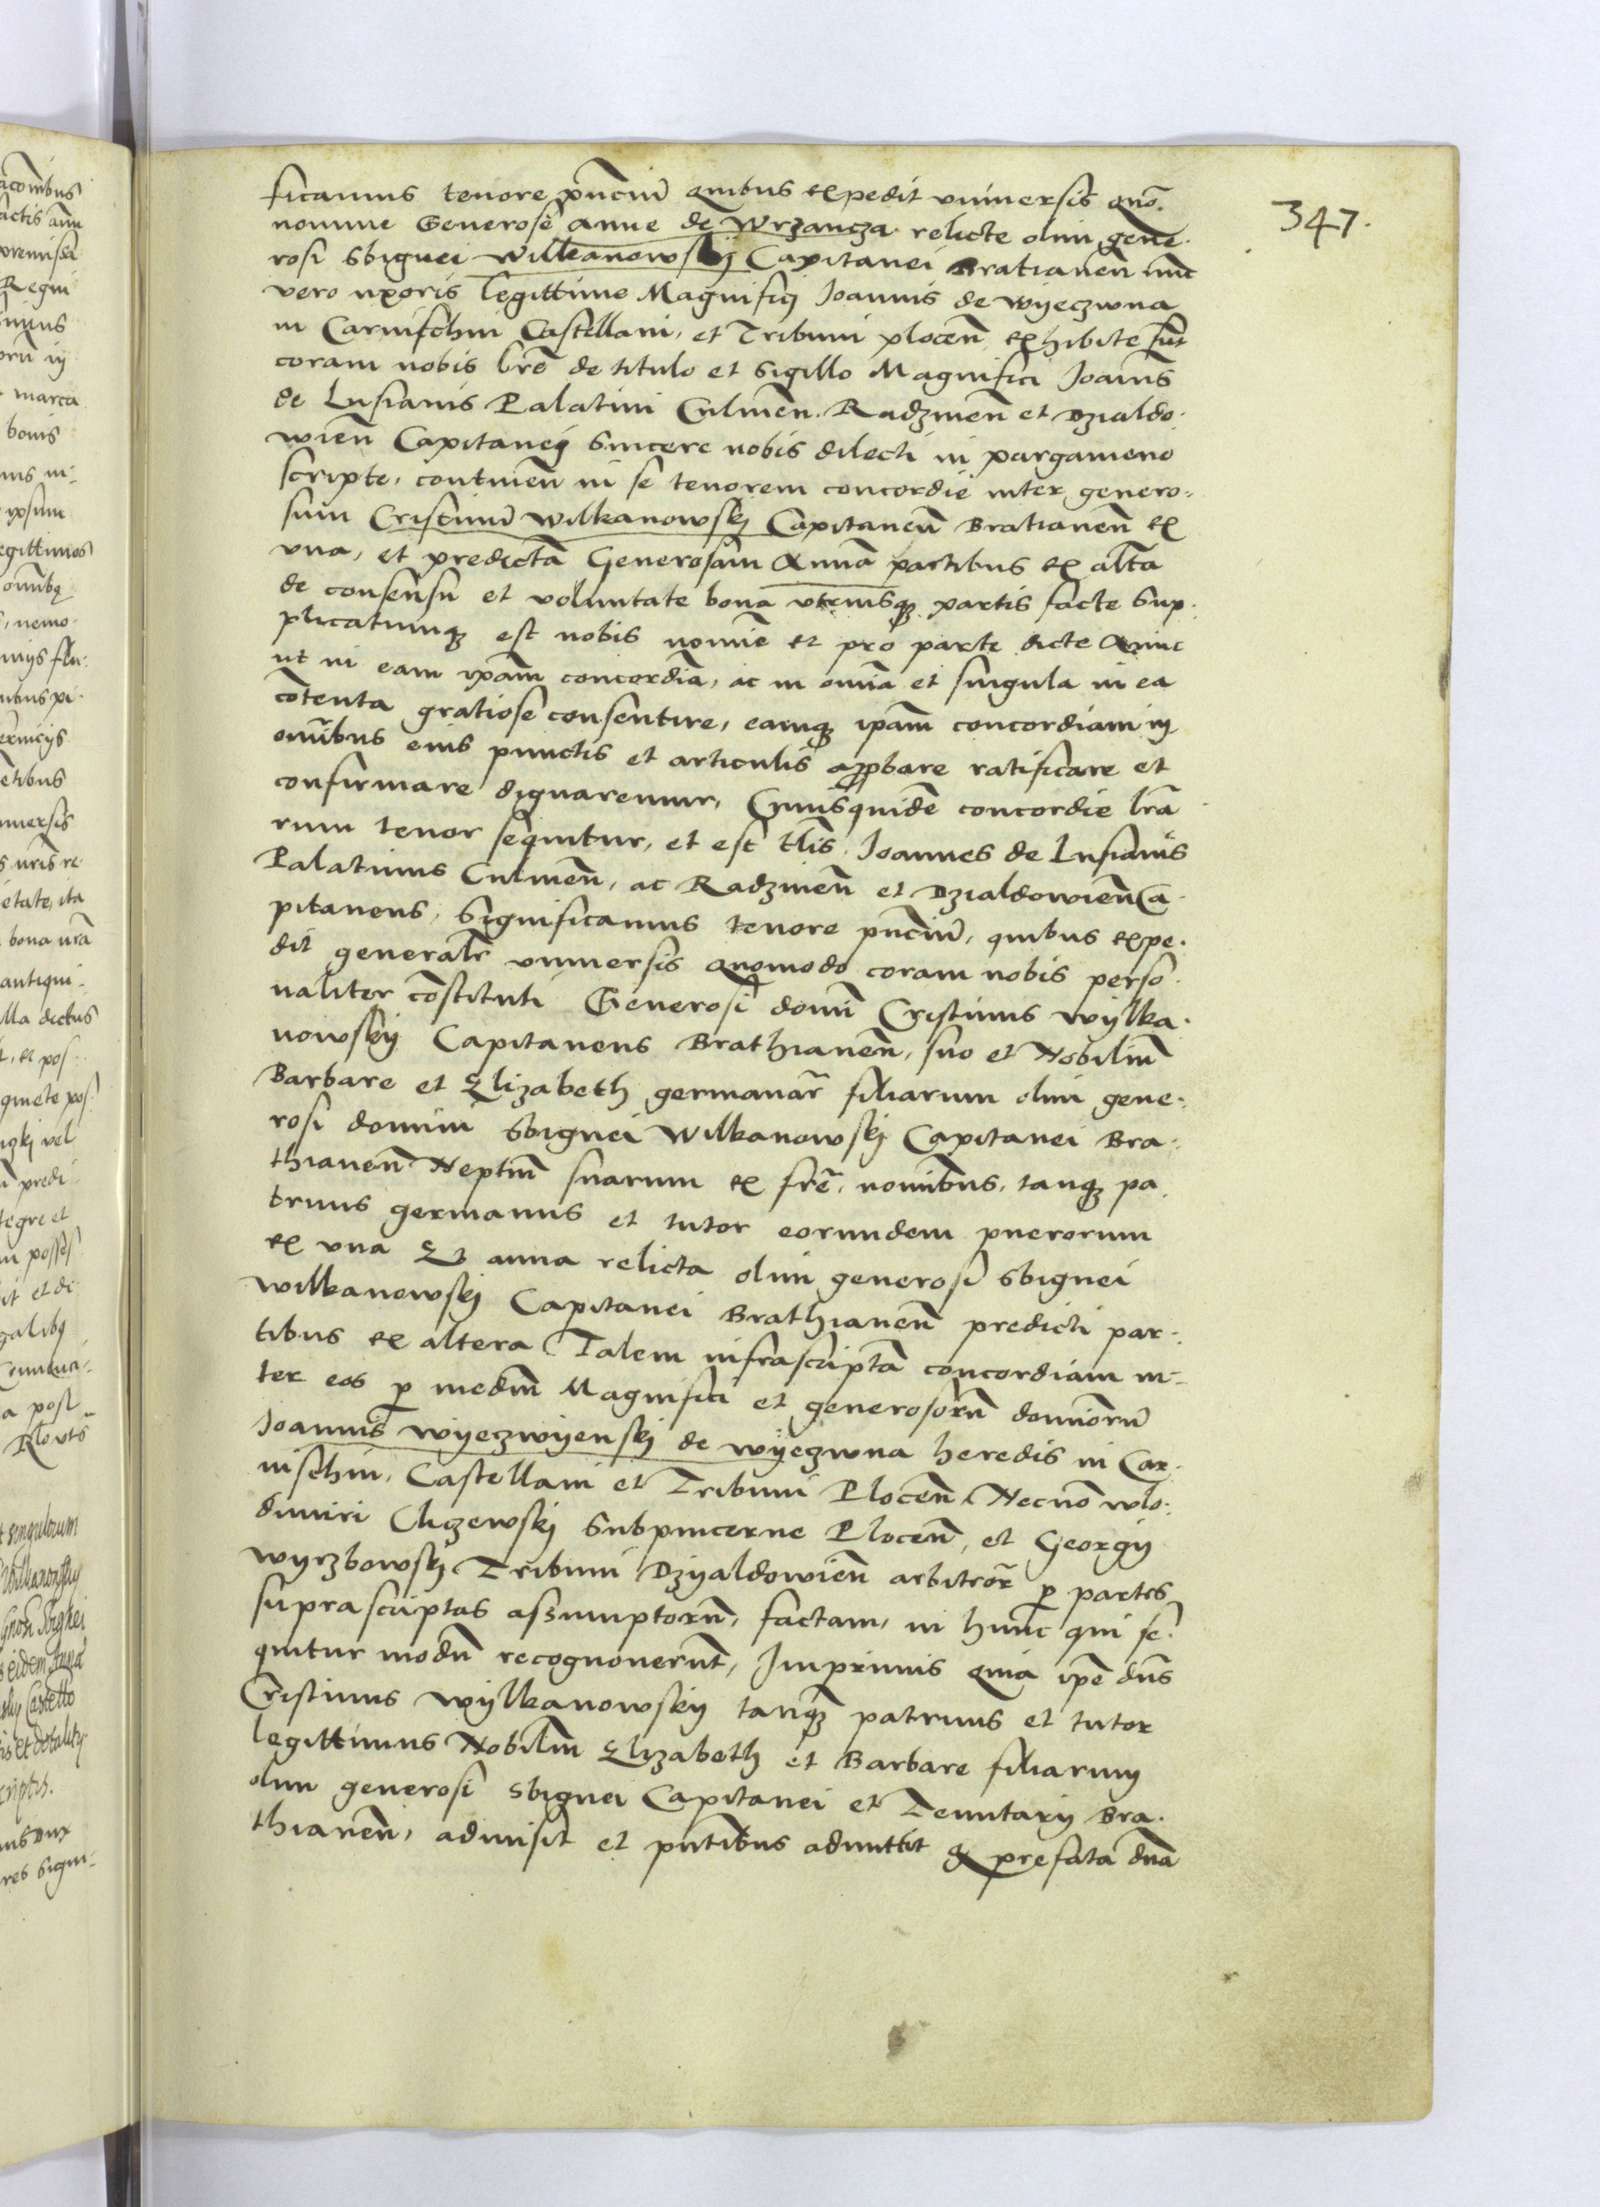 347.
ficamus tenore pñciũ quibus expedit vniuersis quõ.
nomine Generose Anne de Wrzancza relicte olim gene-
rosi Sbignei Wilkanowskij Capitanei Bratianeñ nũc
vero uxoris legittime Magnificj Joannis de Wyeczwna
in Carnischin Castellani, et Tribuni ploceñ exhibite sũt
coram nobis lr̃e de titulo et sigillo Magnifici Joañis
de Lusianis Palatini Culmeñ. Radzineñ et Dzialdo-
wieñ Capitaneij sincere nobis dilecti in pargameno
scripte, contineñ in se tenorem concordie inter genero-
sum Cristinũ Wilkanowskj Capitaneũ Bratianeñ ex
vna, et predictã Generosam Annã partibus ex altã
de consensu et voluntate bona vtriusqʒ partis facte Sup-
plicatumqʒ est nobis nomiẽ et pro parte dicte Anne
ut in eam ipãm concordiã, ac in omĩa et singula in ea
cõtenta gratiose consentire, eamqʒ ipãm concordiam in
omĩbus eius punctis et articulis approbare ratificare et
confirmare dignaremur, Cuiusquidẽ concordie lr̃a
rum tenor sequitur, et est tl̃is. Joannes de Lusianis
Palatinus Culmeñ, ac Radzineñ et Dzialdowieñ Ca-
pitaneus, Significamus tenore pñciũ, quibus expe-
dit generalr̃ vniuersis quomodo coram nobis perso-
naliter cõstituti Generosi domĩ Cristinus Wylka-
nowskij Capitaneus Brathianeñ, suo et Nobiliũ
Barbare et Elizabeth germanar̃ filiarum olim gene-
rosi domini Sbignei Wilkanowskj Capitanei Bra-
thianeñ Neptiũ suarum ex fr̃e, nomĩbus, tanqʒ pa-
truus germanus et tutor eorundem puerorum
ex vna Et Anna relicta olim generosi Sbignei
Wilkanowskj Capitanei Brathianeñ predicti par-
tibus ex altera Talem infrascriptã concordiam in-
ter eos p mediũ Magnifici et generosorũ dominorũ
Joannis Wyeczwyenskj de Wyeczwna heredis in Car-
nischin, Castellani et Tribuni Ploceñ Necnõ Wlo-
dimiri Cliczewskj Subpincerne Ploceñ, et Georgij
Wyrzbowskj Tribuni Dzyaldowieñ arbitror̃ p partes
suprascriptas assumptorũ, factam, in hunc qui se-
quitur modũ recognouerũt, Imprimis quia ipẽ dñs
Cristinus Wylkanowskij tanqʒ patruus et tutor
legittimus Nobiliũ Elizabeth et Barbare filiarum
olim generosi Sbignei Capitanei et Tenutarij Bra-
thianeñ, admisit et pñtibus admittit q prefata dña